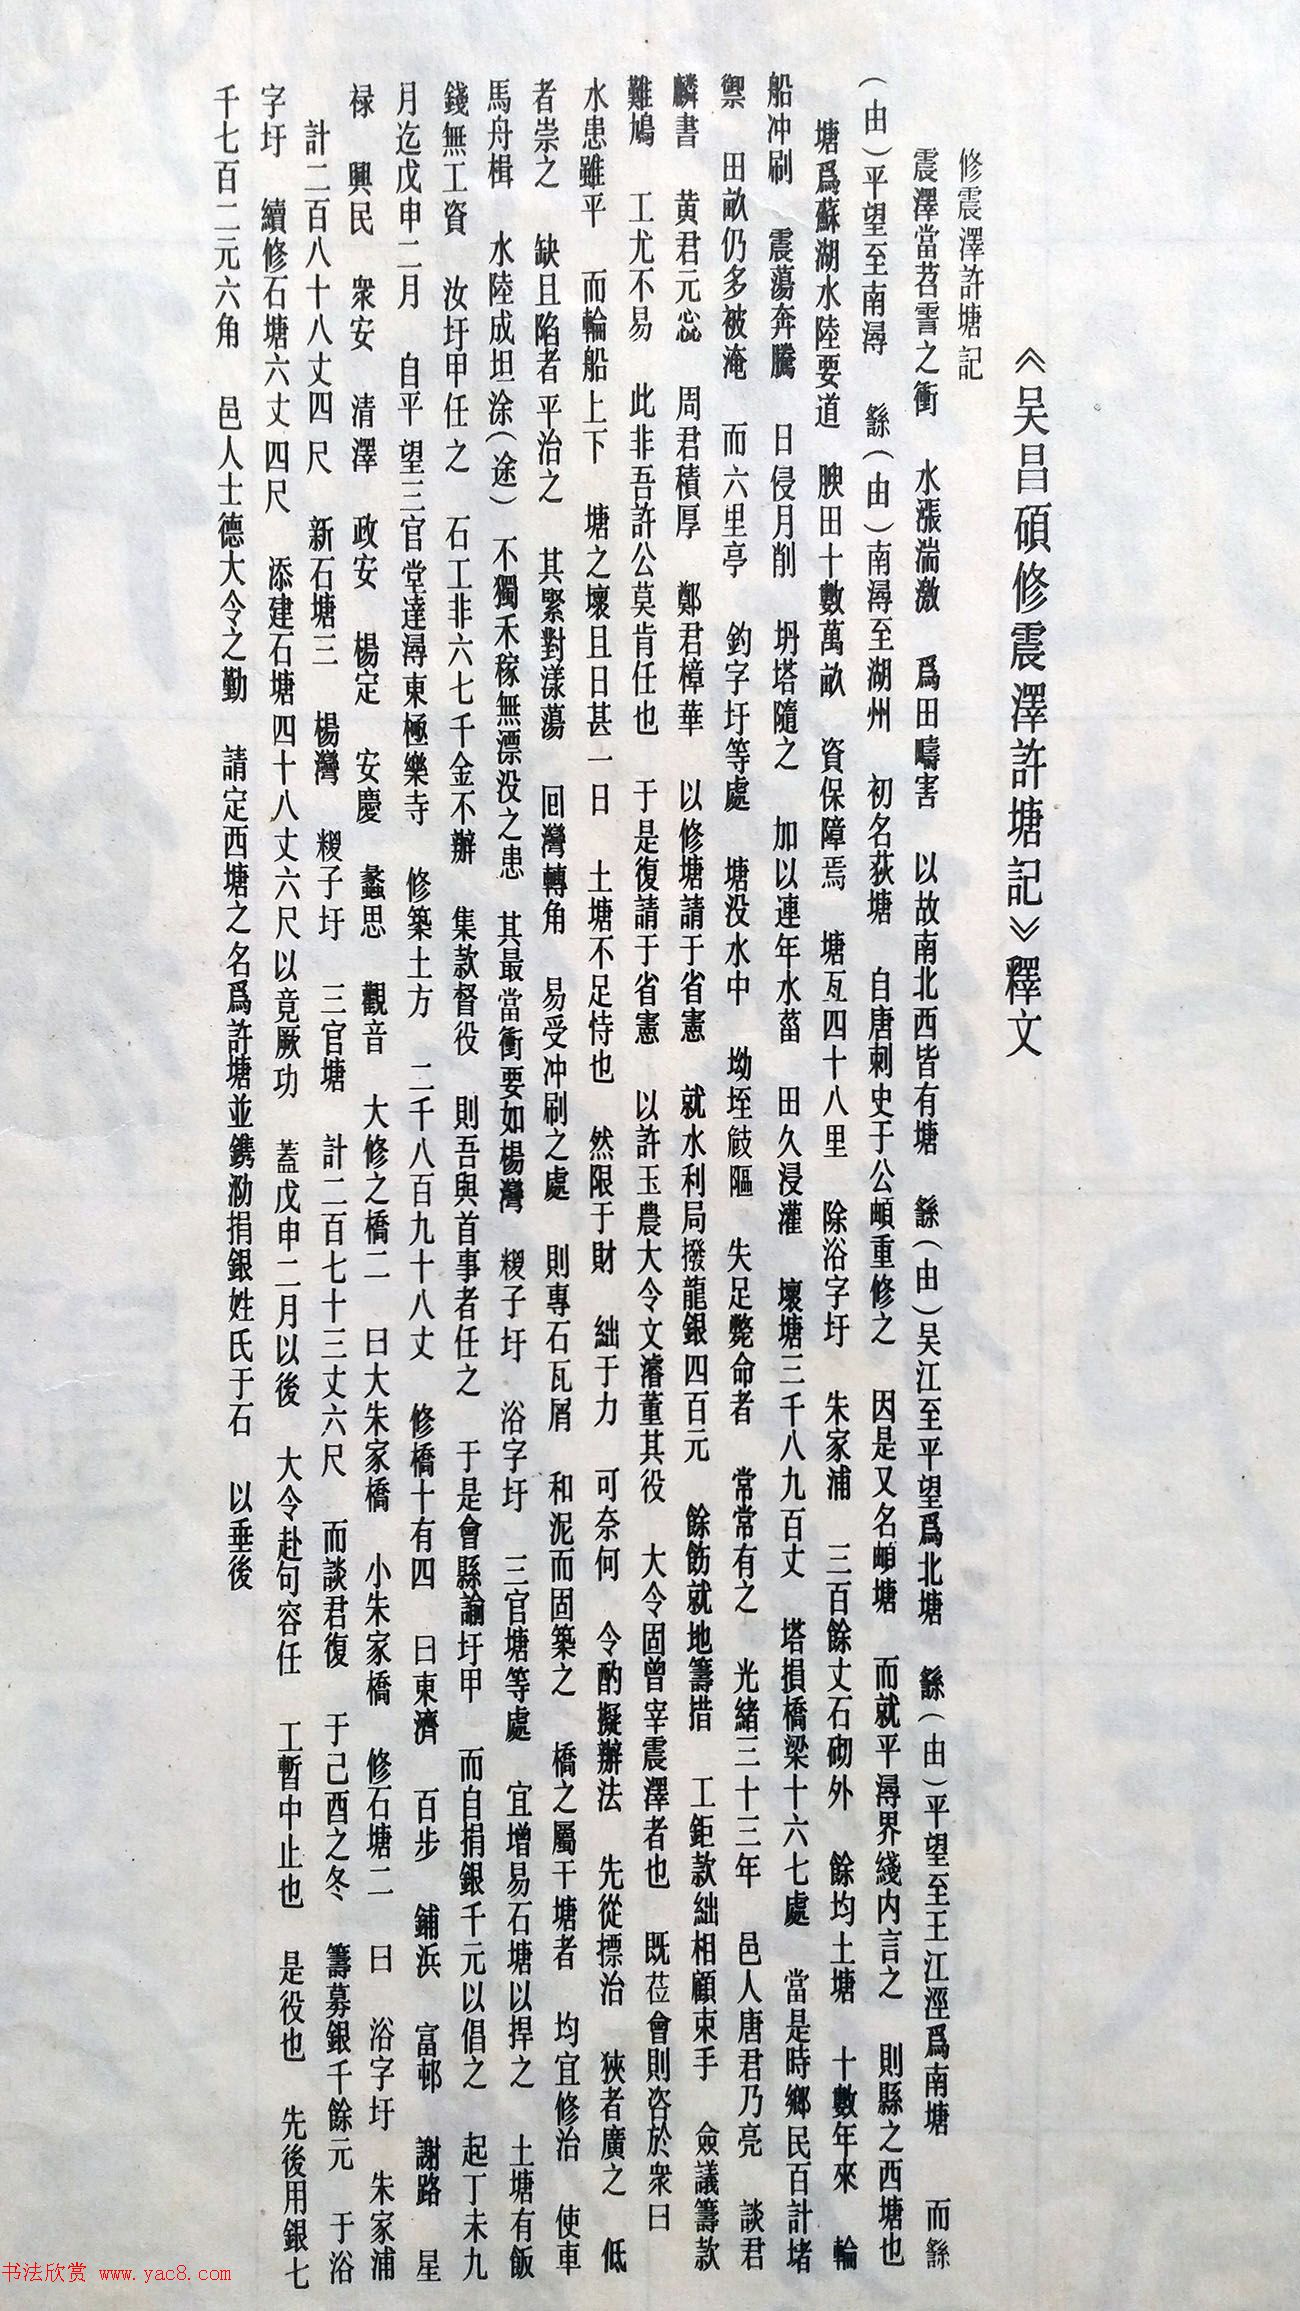 《吴昌碩修震澤許塘記》釋文
修震澤許塘記
震澤當苕霅之衝 水漲湍激 爲田疇害 以故南北西皆有塘 繇(由)吴江至平望爲北塘 繇(由)平望至王江涇爲南塘 而繇
(由)平望至南潯 繇(由)南潯至湖州 初名荻塘 自唐刺史于公頔重修之 因是又名頔塘 而就平潯界綫内言之 則縣之西塘也
塘爲蘇湖水陸要道 腴田十數萬畝 資保障焉 塘亙四十八里 除浴字圩 朱家浦 三百餘丈石砌外 餘均土塘 十數年來 輪
船冲刷 震蕩奔騰 日侵月削 坍塔隨之 加以連年水菑 田久浸灌 壞塘三千八九百丈 塔損橋梁十六七處 當是時鄉民百計堵
禦 田畝仍多被淹 而六里亭 釣字圩等處 塘没水中 坳垤攲䧢 失足斃命者 常常有之 光緒三十三年 邑人唐君乃亮 談君
麟書 黄君元蕊 周君積厚 鄭君樟華 以修塘請于省憲 就水利局撥龍銀四百元 餘飭就地籌措 工鉅款絀相顧束手 僉議籌款
難鳩 工尤不易 此非吾許公莫肯任也 于是復請于省憲 以許玉農大令文濬董其役 大令固曾宰震澤者也 既莅會則咨於衆曰
水患雖平 而輪船上下 塘之壞且日甚一日 土塘不足恃也 然限于財 絀于力 可奈何 令酌擬辦法 先從摽治 狹者廣之 低
者崇之 缺且陷者平治之 其緊對漾蕩 回灣轉角 易受冲刷之處 則專石瓦屑 和泥而固築之 橋之屬干塘者 均宜修治 使車
馬舟楫 水陸成坦涂(途) 不獨禾稼無漂没之患 其最當衝要如楊灣 糉子圩 浴字圩 三官塘等處 宜增易石塘以捍之 土塘有飯
錢無工資 汝圩甲任之 石工非六七千金不辦 集款督役 則吾與首事者任之 于是會縣諭圩甲 而自捐銀千元以倡之 起丁未九
月迄戊申二月 自平望三官堂達潯東極樂寺 修築土方 二千八百九十八丈 修橋十有四 曰東濟 百步 鋪浜 富邨 謝路 星
禄 興民 衆安 清澤 政安 楊定 安慶 蠡思 觀音 大修之橋二 曰大朱家橋 小朱家橋 修石塘二 曰 浴字圩 朱家浦
計二百八十八丈四尺 新石塘三 楊灣 糉子圩 三官塘 計二百七十三丈六尺 而談君復 于己酉之冬 籌募銀千餘元 于浴
字圩 續修石塘六丈四尺 添建石塘四十八丈六尺以竟厥功 蓋戊申二月以後 大令赴句容任 工暫中止也 是役也 先後用銀七
千七百二元六角 邑人士德大令之勤 請定西塘之名爲許塘並鐫泐捐銀姓氏于石 以垂後
书法欣赏 www.yac8.com